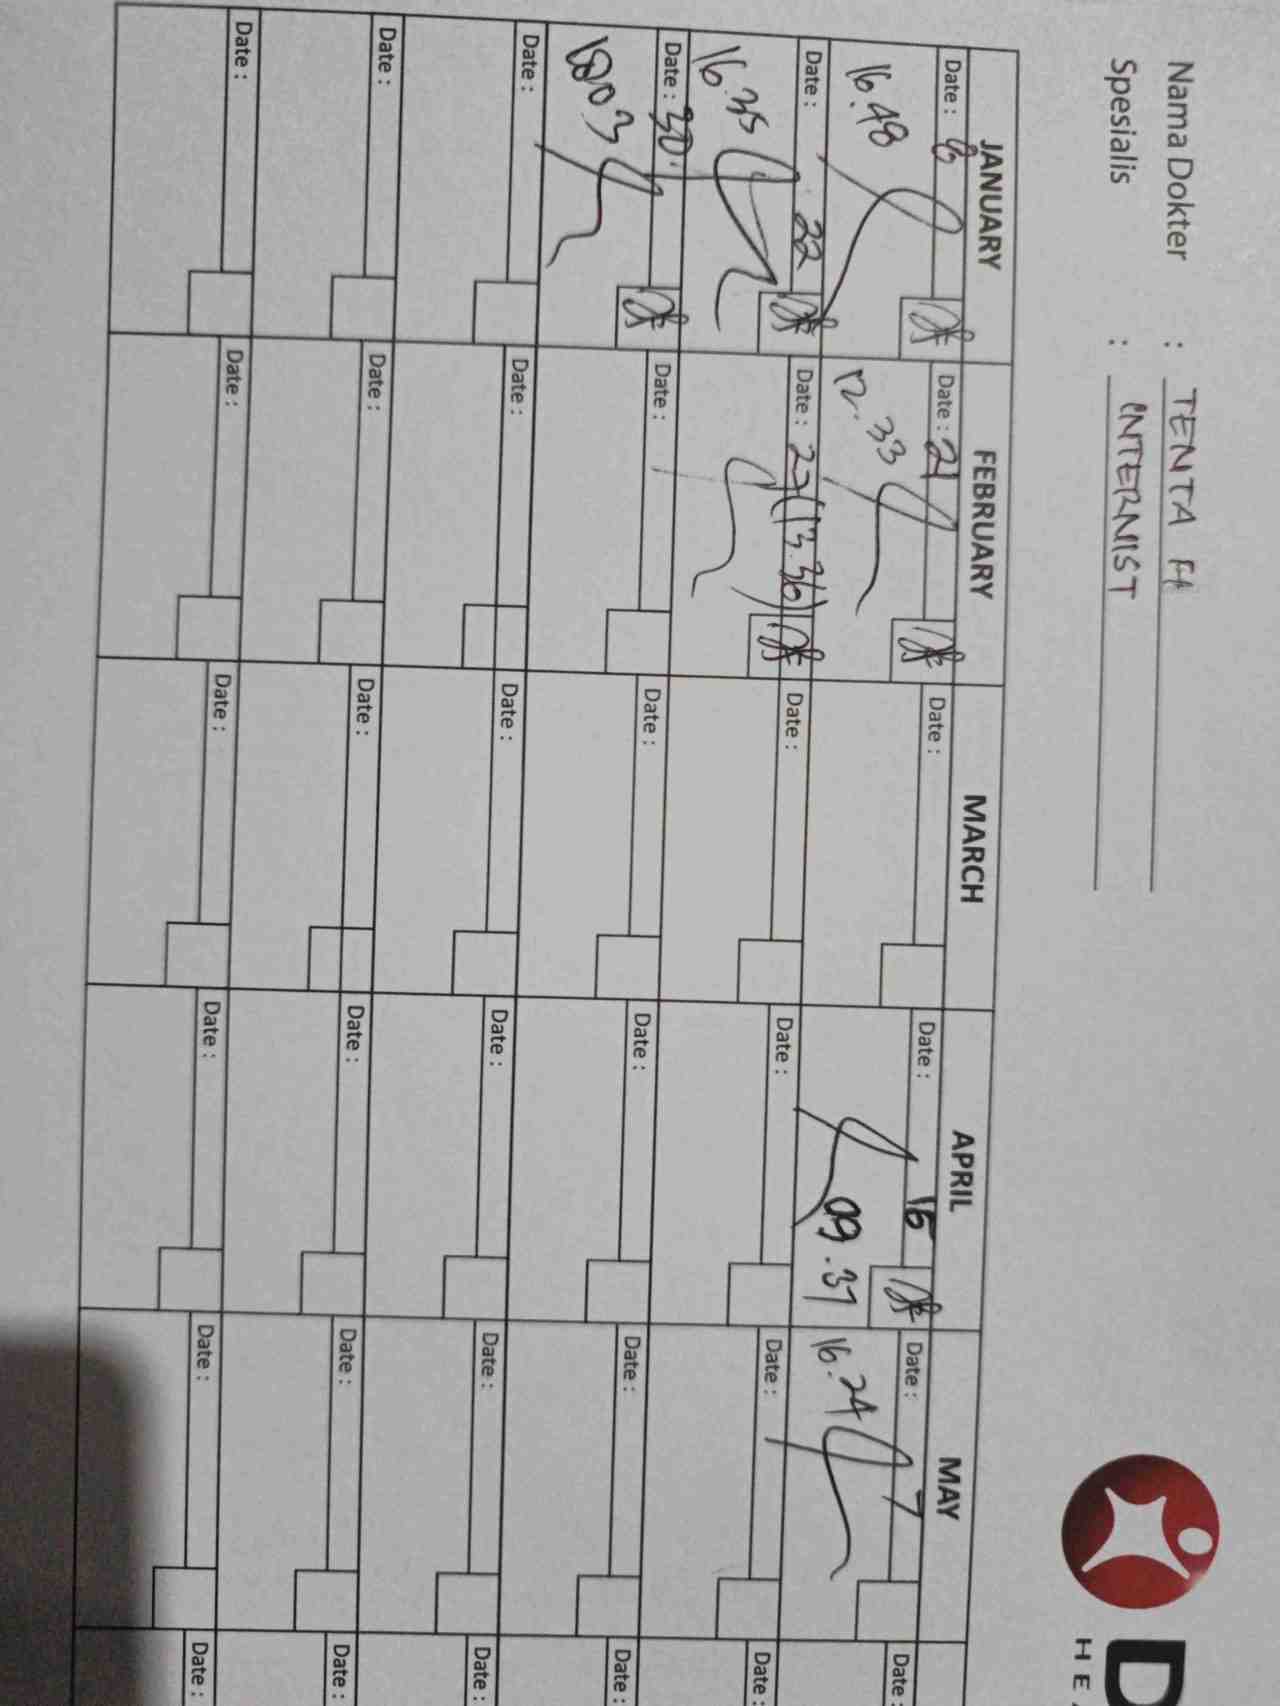 Nama Dokter : TENTA H
Spesialis : INTERNIST
D
HEA
JANUARY FEBRUARY MARCH APRIL MAY
Date : 8 Date : 21 Date : Date : 16 Date : 7 Date :
16.48 12.33 09.37 16.24
Date : 22 Date : 27 (13.36) Date : Date : Date : Date :
16.35
Date : 30 Date : Date : Date : Date : Date :
18003
Date : Date : Date : Date : Date : Date :
Date : Date : Date : Date : Date : Date :
Date : Date : Date : Date : Date : Date :